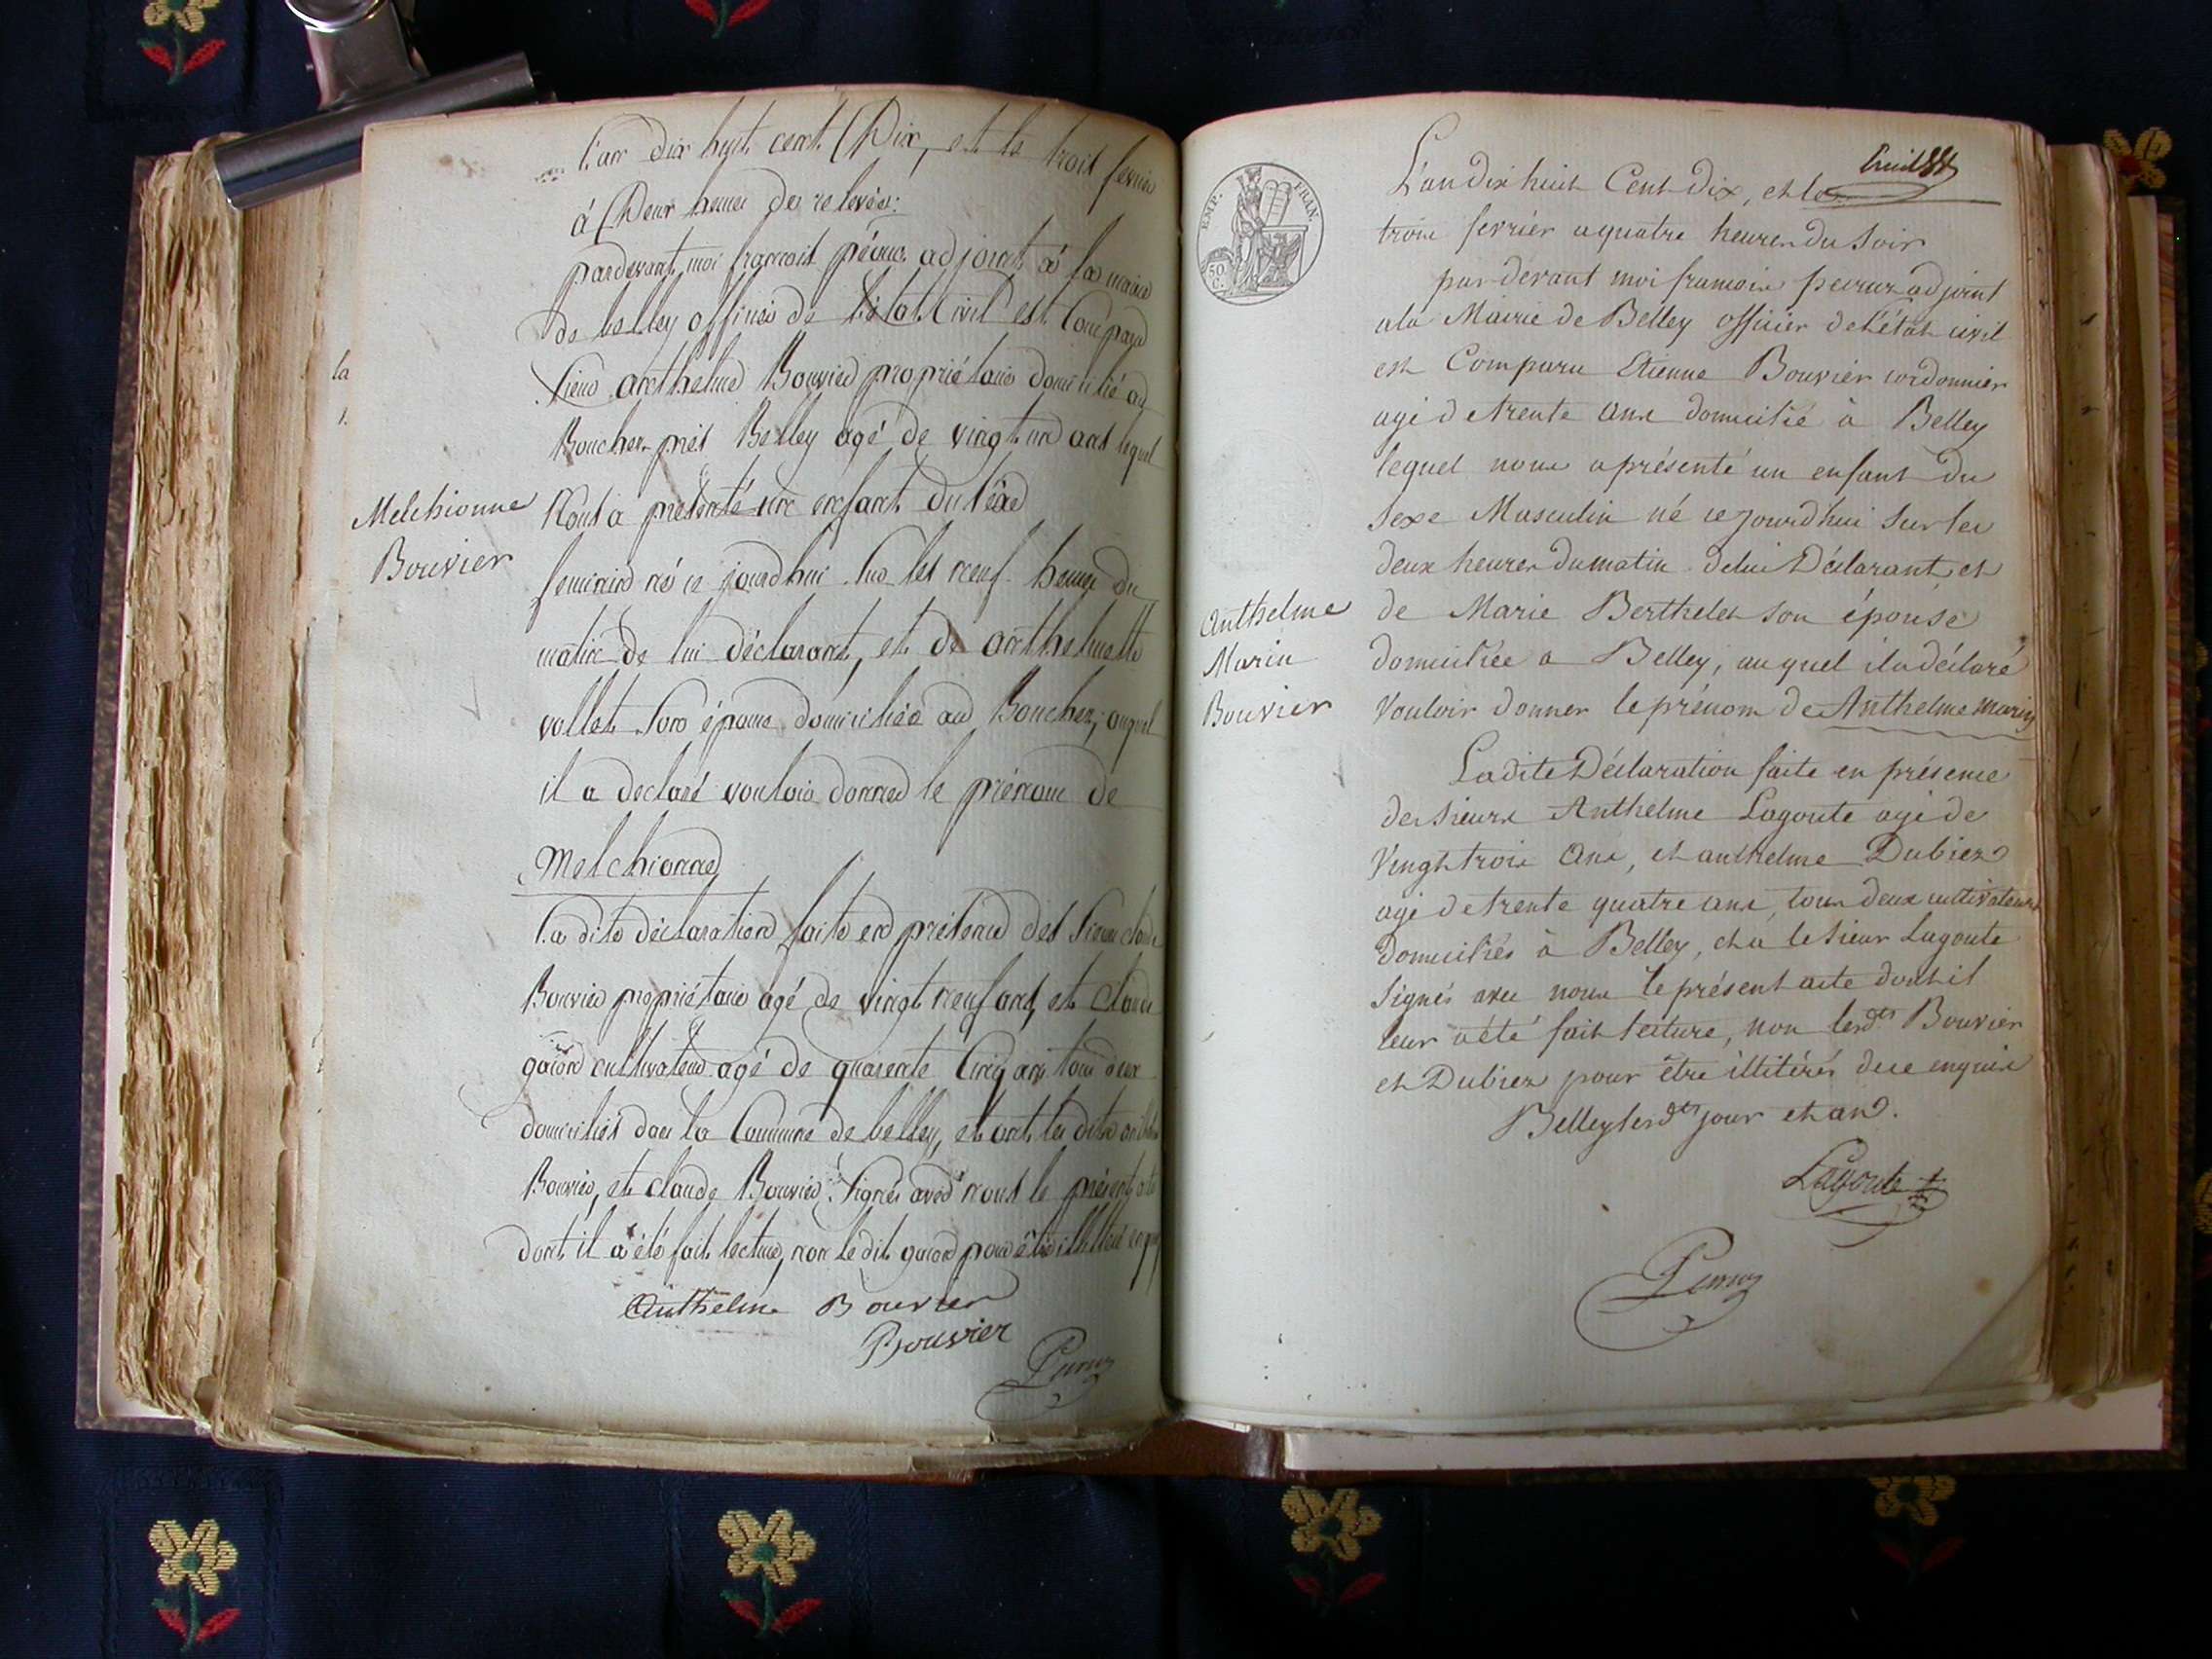 L'an dix huit cent Dix, et le trois fevrier
à Deux heures de relevée:
pardevant moi francois adjoint à la mairie
de belley officier de l'état Civil est Comparu
Sieur anthelme Bouvier propriétaire domicilié au
Boucher près Belley agé de vingt un ans lequel
Nous a présenté un enfant du sexe
feminin né ce jourd'hui sur les neuf heures du
matin de lui déclarant, et de anthelmette
vollet son épouse domiciliée au Boucher, auquel
il a declaré vouloir donner le prénom de
Melchionne
La dite déclaration faite en présence des Sieurs claude
Bouvier propriétaire agé de vingt neuf ans, et claude
cultivateur agé de quarente Cinq ans tous deux
domiciliés dans la Commune de belley, et ont les dits anthelme
Bouvier, et claude Bouvier signés avec nous le présent acte
dont il a été fait lecture, non le dit pour être illitéré
Anthelme Bouvier
Bouvier
Melchionne
Bouvier
la
EMP. FRAN.
50
C.
L'an dix huit Cent dix, et le
trois fevrier a quatre heures du Soir
par devant moi francois adjoint
a la Mairie de Belley officier de l'état civil
est Comparu Etienne Bouvier cordonnier
agé de trente ans domicilié à Belley
lequel nous a présenté un enfant du
Sexe Masculin né ce jourd'hui sur les
deux heures du matin de lui Déclarant, et
de Marie Berthelet son épouse
domiciliée a Belley, auquel il a déclaré
Vouloir donner le prénom de Anthelme Marin
La dite Déclaration faite en présence
des sieurs Anthelme Lagoute agé de
Vingt trois ans, et anthelme Dubiez
agé de trente quatre ans, tous deux cultivateurs
domiciliés à Belley, et a le sieur Lagoute
Signés avec nous le présent acte dont il
leur a été fait lecture, non lesdts Bouvier
et Dubiez pour être illitérés de ce enquis
Belley lesdts jour et an.
Lagoute
Anthelme
Marin
Bouvier